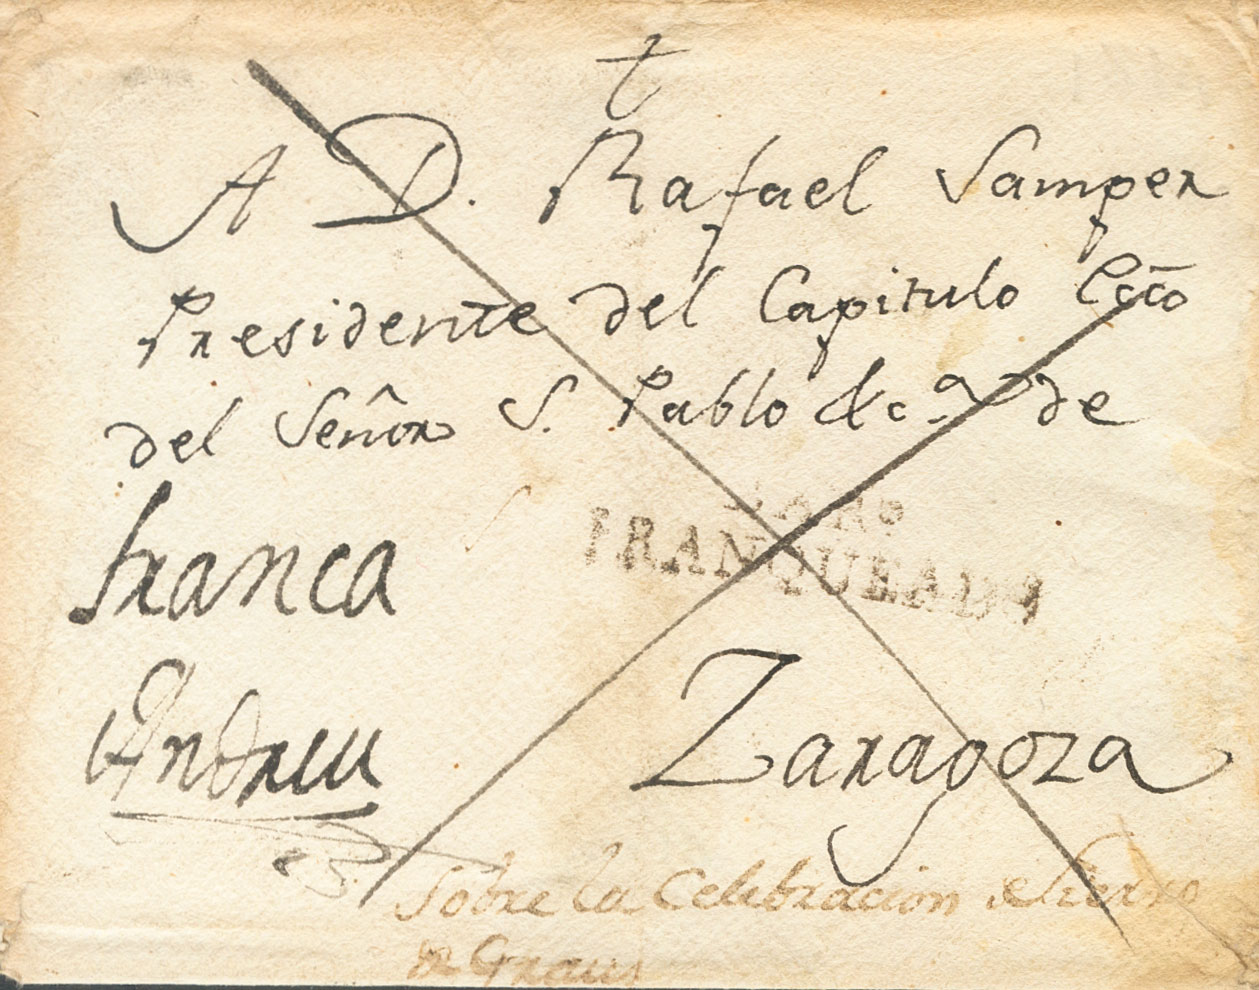 A D. Rafael Samper
Presidente del Capitulo Ecco
del Señor S. Pablo &c.a de
franca
FRANQUEADO
Andreu
Zaragoza
Sobre la Celebracion de
de Graus